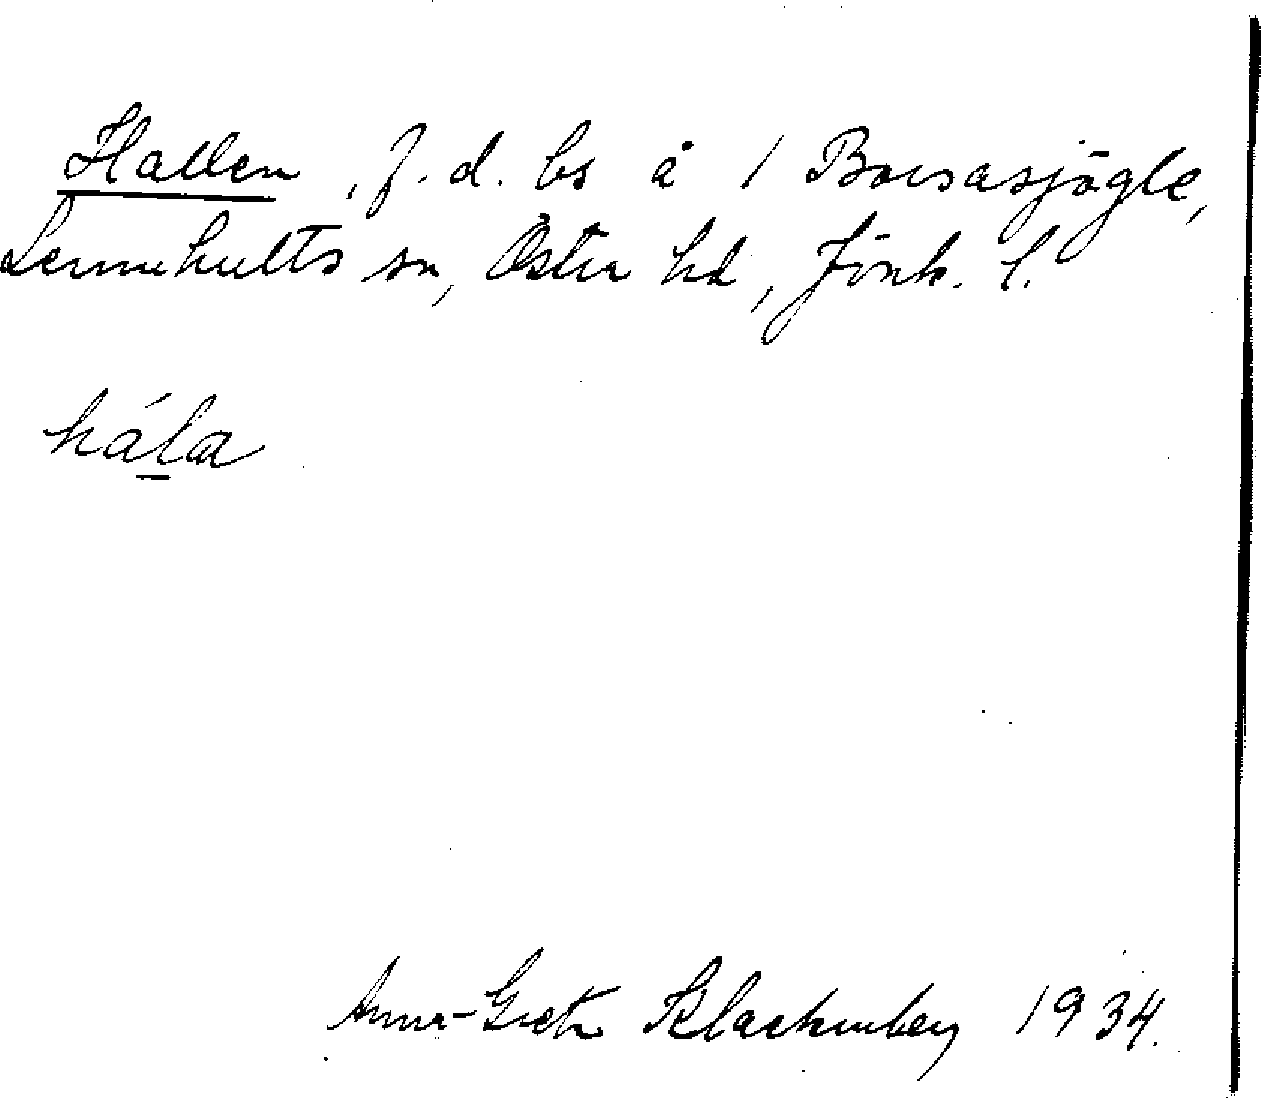 Hallen, f. d. bs å 1 Boesasjögle,
Lemnhults sn, Östra hd, Jönk. l.
hála
Anna-Greta Klackenberg 1934.